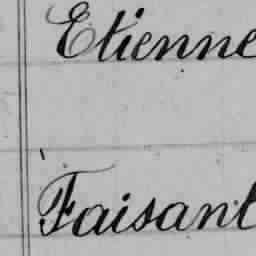 Etienne
Faisant